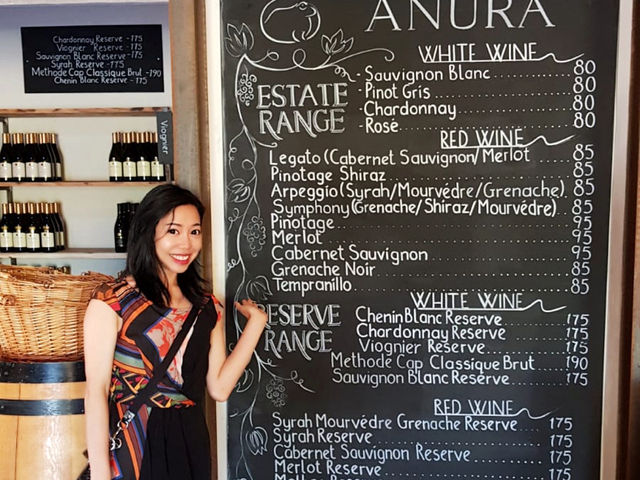 Chardonnay Reserve -175
Viognier Reserve -175
Sauvignon Blanc Reserve -175
Syrah Reserve -175
Methode Cap Classique Brut -190
Chenin Blanc Reserve -175
Viognier
ANURA
WHITE WINE
ESTATE RANGE
-Sauvignon Blanc 80
-Pinot Gris 80
-Chardonnay 80
-Rosé 80
RED WINE
Legato (Cabernet Sauvignon/Merlot 85
Pinotage Shiraz 85
Arpeggio (Syrah/Mourvédre/Grenache) 85
Symphony (Grenache/Shiraz/Mourvédre) 85
Pinotage 95
Merlot 95
Cabernet Sauvignon 95
Grenache Noir 85
Tempranillo 85
WHITE WINE
RESERVE RANGE
Chenin Blanc Reserve 175
Chardonnay Reserve 175
Viognier Reserve 175
Methode Cap Classique Brut 190
Sauvignon Blanc Reserve 175
RED WINE
Syrah Mourvédre Grenache Reserve 175
Syrah Reserve 175
Cabernet Sauvignon Reserve 175
Merlot Reserve 175